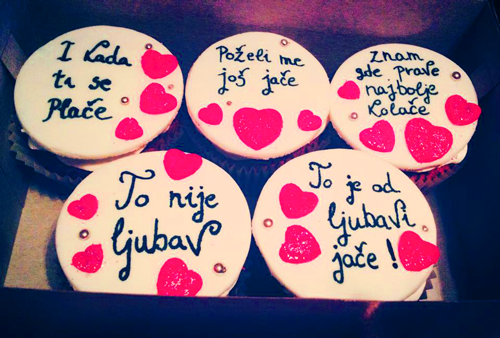 I kada
ti se
plače
Poželi me
još jače
Znam
gde prave
najbolje
kolače
To nije
ljubav
To je od
ljubavi
jače!